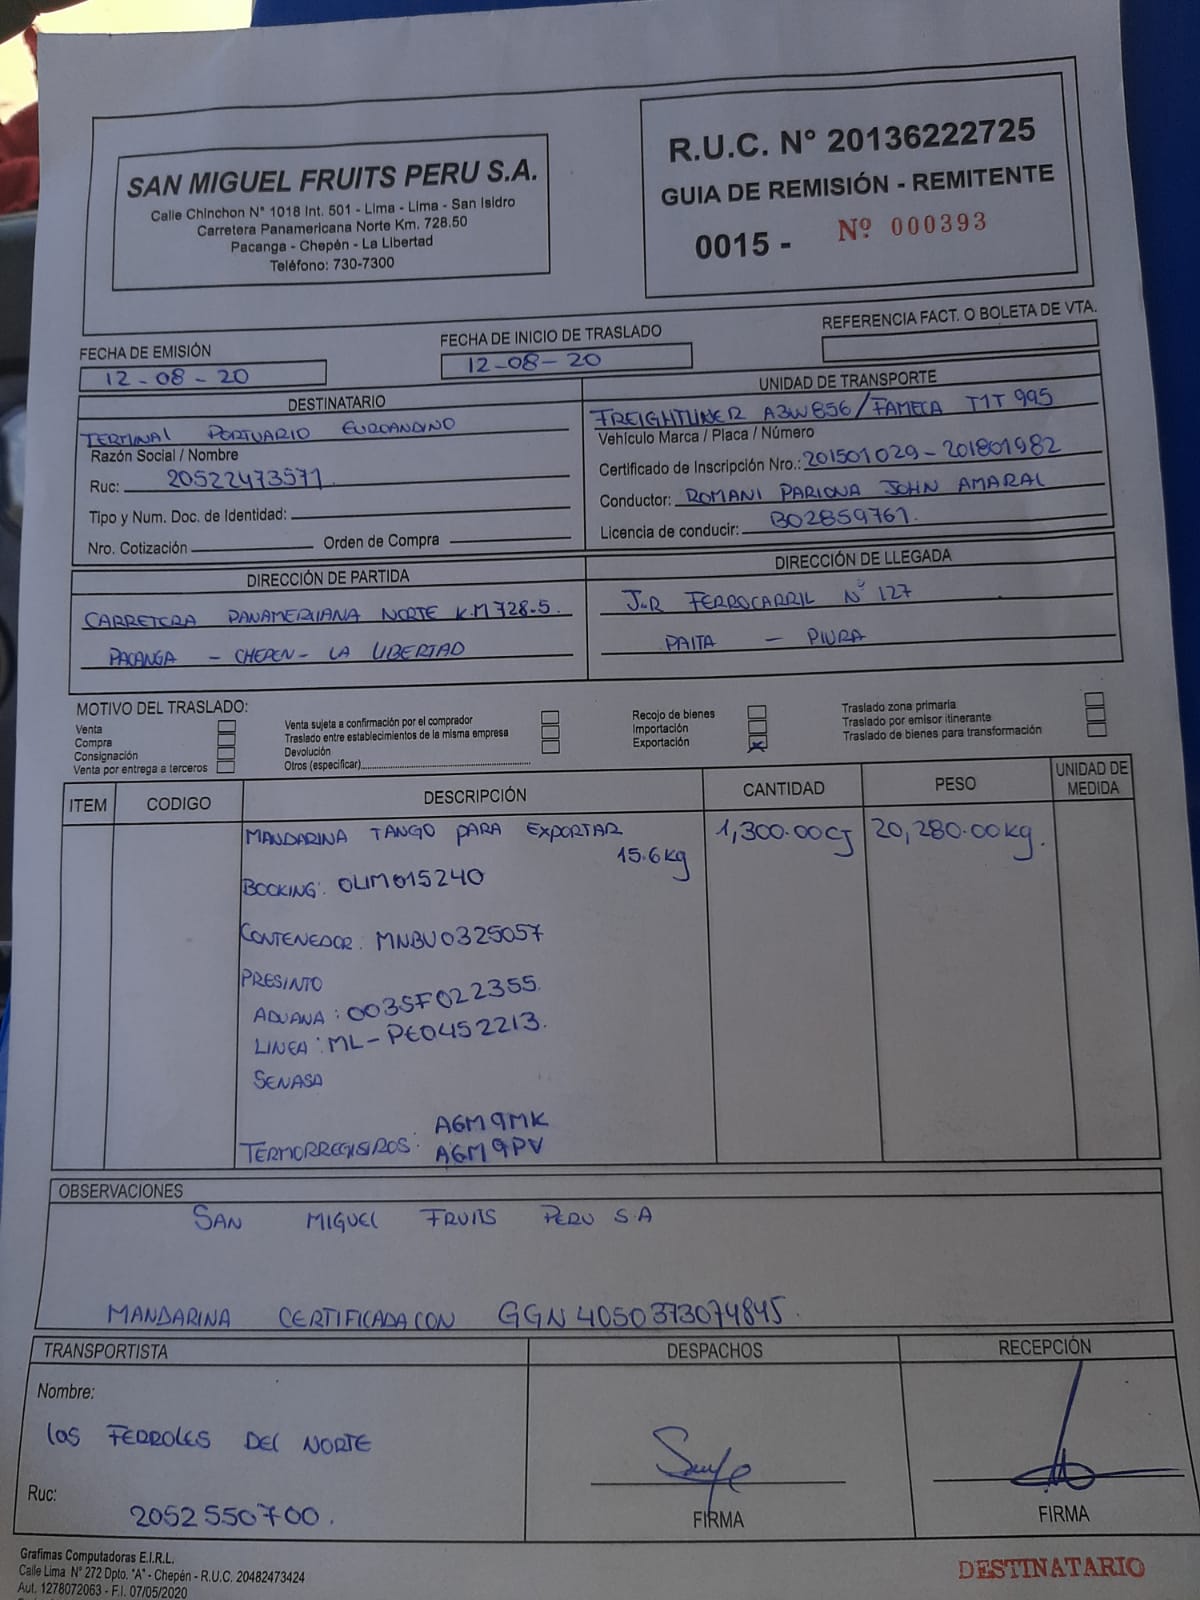 SAN MIGUEL FRUITS PERU S.A.
Calle Chinchon N° 1018 Int. 501 - Lima - Lima - San Isidro
Carretera Panamericana Norte Km. 728.50
Pacanga - Chepén - La Libertad
Teléfono: 730-7300
R.U.C. N° 20136222725
GUIA DE REMISIÓN - REMITENTE
0015 - Nº 000393
FECHA DE EMISIÓN
12-08-20
FECHA DE INICIO DE TRASLADO
12-08-20
REFERENCIA FACT. O BOLETA DE VTA.
DESTINATARIO
TERMINAL PORTUARIO EUROANDINO
Razón Social / Nombre
Ruc: 20522473571
Tipo y Num. Doc. de Identidad:
Nro. Cotización Orden de Compra
UNIDAD DE TRANSPORTE
FREIGHTLINER A3W856/FAMECA T1T 995
Vehículo Marca / Placa / Número
Certificado de Inscripción Nro.: 201501029-201801982
Conductor: ROMANI PARIONA JOHN AMARAL
Licencia de conducir: B02859761.
DIRECCIÓN DE PARTIDA
CARRETERA PANAMERICANA NORTE K.M 728.5.
PACANGA - CHEPEN - LA LIBERTAD
DIRECCIÓN DE LLEGADA
J.R FERROCARRIL Nº 127
PAITA - PIURA
MOTIVO DEL TRASLADO:
Venta
Compra
Consignación
Venta por entrega a terceros
Venta sujeta a confirmación por el comprador
Traslado entre establecimientos de la misma empresa
Devolución
Otros (especificar)
Recojo de bienes
Importación
Exportación x
Traslado zona primaria
Traslado por emisor itinerante
Traslado de bienes para transformación
ITEM CODIGO DESCRIPCIÓN CANTIDAD PESO UNIDAD DE MEDIDA
MANDARINA TANGO PARA EXPORTAR 1,300.00CJ 20,280.00kg.
15.6kg
BOOKING: OLIM015240
CONTENEDOR: MNBU0325057
PRESINTO
ADUANA: 003SF022355.
LINEA: ML-PE0452213.
SENASA
AGM9MK
TERMORREGISTROS: AGM9PV
OBSERVACIONES
SAN MIGUEL FRUITS PERU S.A
MANDARINA CERTIFICADA CON GGN 4050373074845.
TRANSPORTISTA
Nombre:
LOS FERROLES DEL NORTE
Ruc:
2052550700.
DESPACHOS
FIRMA
RECEPCIÓN
FIRMA
Grafimas Computadoras E.I.R.L.
Calle Lima N° 272 Dpto. "A" - Chepén - R.U.C. 20482473424
Aut. 1278072063 - F.I. 07/05/2020
DESTINATARIO